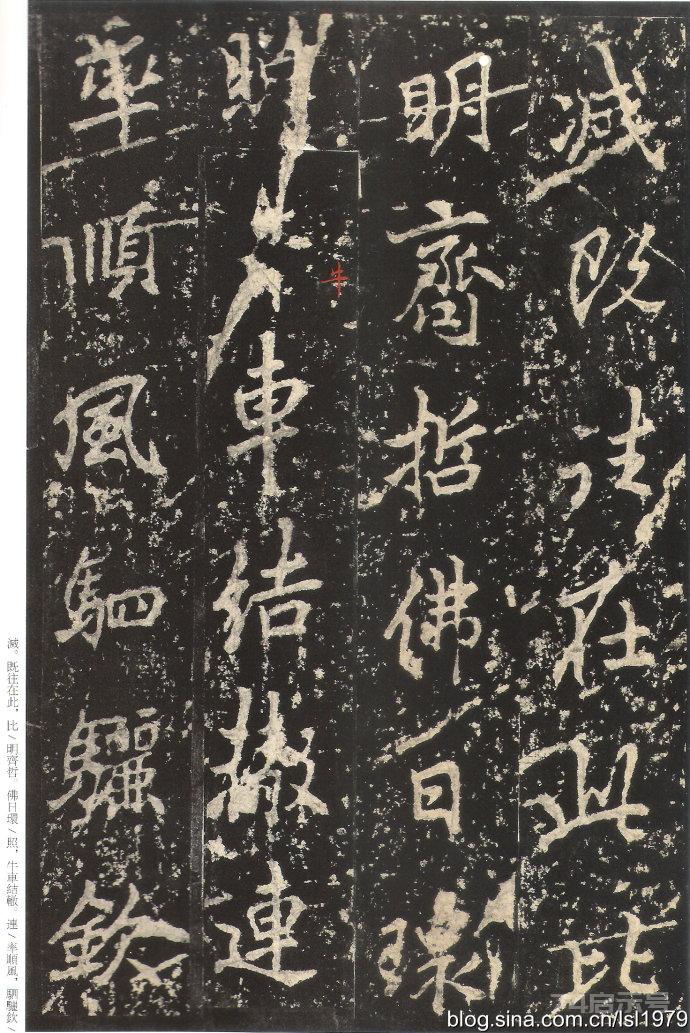 滅既往在此比
明齊哲佛日環
照車結連
牛
率順風駟驪欽
滅。既往在此，比/明齊哲 佛日環/照，牛車結 連/率順風，駟驪欽/
blog.sina.com.cn/lsl1979